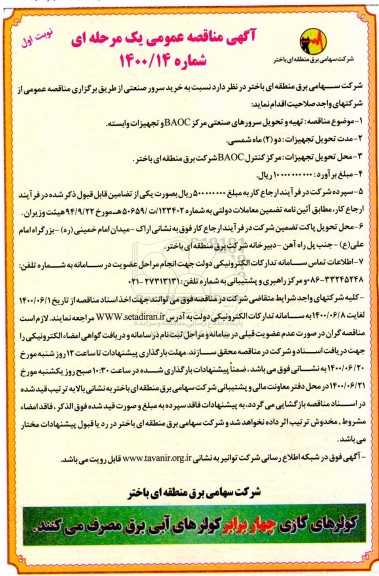 نوبت اول
آگهی مناقصه عمومی یک مرحله ای
شماره ۱۴۰۰/۱۴
شرکت سهامی برق منطقه ای باختر
شرکت ســهامی برق منطقه ای باختر در نظر دارد نسبت به خرید سرور صنعتی از طریق برگزاری مناقصه عمومی از
شرکتهای واجد صلاحیت اقدام نماید:
۱- موضوع مناقصه: تهیه و تحویل سرورهای صنعتی مرکز BAOC و تجهیزات وابسته.
۲- مدت تحویل تجهیزات: دو (۲) ماه شمسی.
۳- محل تحویل تجهیزات: مرکز کنترل BAOC شرکت برق منطقه ای باختر.
۴- مبلغ برآورد: ۱۰۰۰۰۰۰۰۰۰۰ ریال.
۵- سپرده شرکت در فرآیند ارجاع کار به مبلغ ۵۰۰۰۰۰۰۰۰ ریال بصورت یکی از تضامین قابل قبول ذکر شده در فرآیند
ارجاع کار، مطابق آئین نامه تضمین معاملات دولتی به شماره ۱۲۳۴۰۲/ت/۵۰۶۵۹هـ مورخ ۹۴/۹/۲۲ هیئت وزیران.
۶- محل تحویل پاکت تضمین شرکت در فرآیند ارجاع کار فوق به نشانی اراک - میدان امام خمینی (ره) - بزرگراه امام
علی (ع) - جنب پل راه آهن - دبیرخانه شرکت برق منطقه ای باختر.
۷- اطلاعات تماس سامانه تدارکات الکترونیکی دولت جهت انجام مراحل عضویت در سامانه به شماره تلفن:
۳۳۲۴۵۲۴۸-۰۸۶ و مرکز راهبری و پشتیبانی به شماره تلفن: ۲۷۳۱۳۱۳۱-۰۲۱
- کلیه شرکتهای واجد شرایط متقاضی شرکت در مناقصه فوق می توانند جهت اخذ اسناد مناقصه از تاریخ ۱۴۰۰/۰۶/۱
لغایت ۱۴۰۰/۰۶/۸ به سامانه تدارکات الکترونیکی دولت به آدرس WWW.setadiran.ir مراجعه نمایند. لازم است
مناقصه گران در صورت عدم عضویت قبلی در سامانه و مراحل ثبت نام در سامانه و دریافت گواهی امضاء الکترونیکی را
جهت دریافت اسناد و شرکت در مناقصه محقق سازند. مهلت بارگذاری پیشنهادات تا ساعت ۱۲ روز شنبه مورخ
۱۴۰۰/۰۶/۲۰ به نشانی فوق می باشد، ضمناً پیشنهادات بارگذاری شده در ساعت ۱۰:۳۰ صبح روز یکشنبه مورخ
۱۴۰۰/۰۶/۲۱ در محل دفتر معاونت مالی و پشتیبانی شرکت سهامی برق منطقه ای باختر به نشانی بالا به ترتیب قید شده
در اسناد مناقصه بازگشایی می گردد، به پیشنهادات فاقد سپرده به مبلغ و صورت قید شده فوق الذکر، فاقد امضاء
مشروط، مخدوش ترتیب اثر داده نخواهد شد و شرکت سهامی برق منطقه ای باختر در رد یا قبول پیشنهادات مختار
می باشد.
- آگهی فوق در شبکه اطلاع رسانی شرکت توانیر به نشانی www.tavanir.org.ir قابل رویت می باشد.
شرکت سهامی برق منطقه ای باختر
کولرهای گازی چهار برابر کولرهای آبی برق مصرف می کنند.